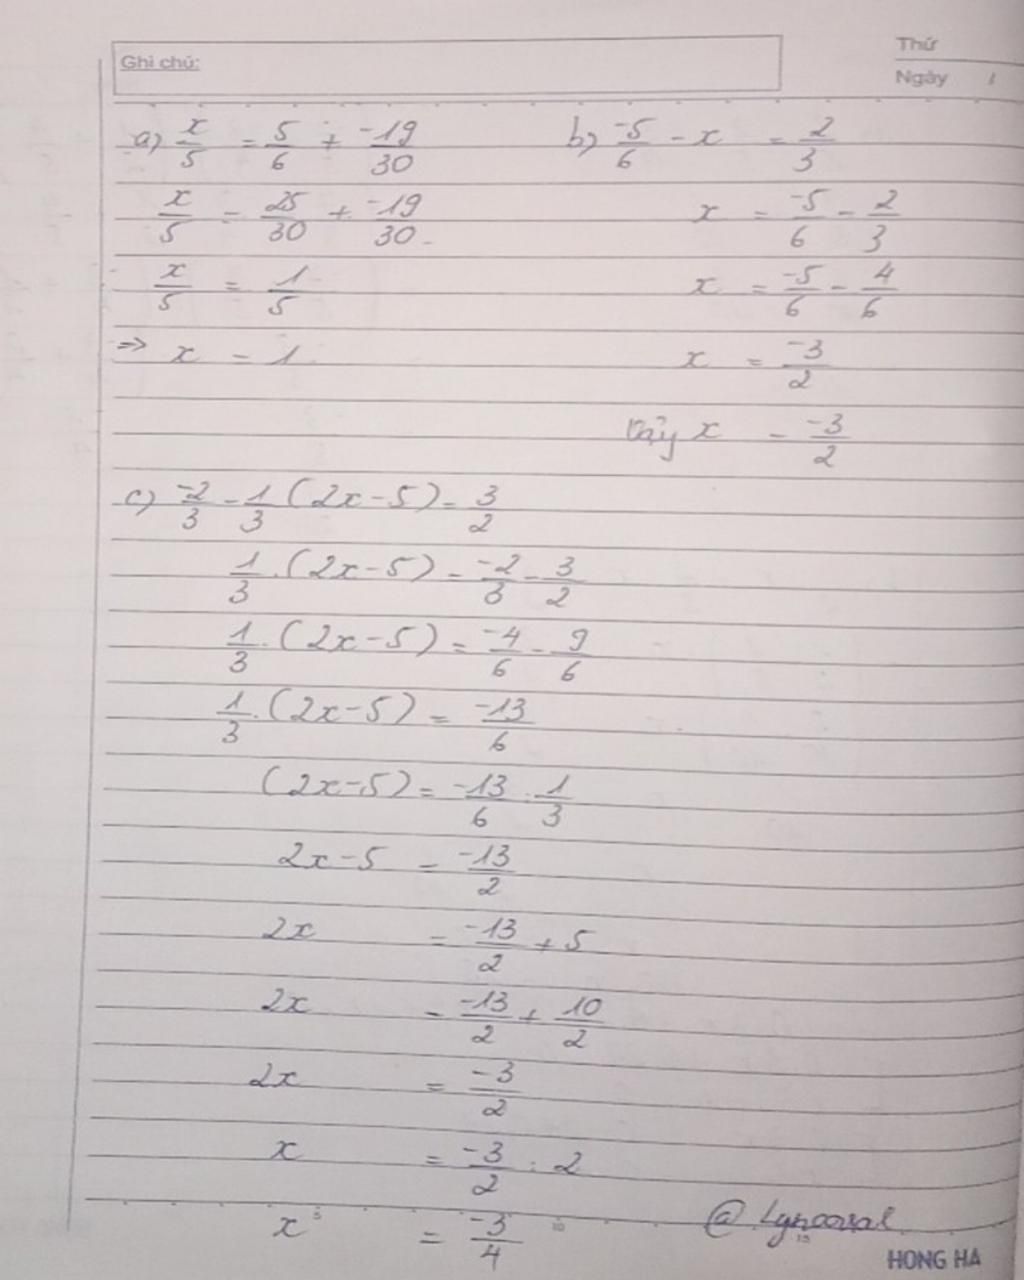 Ghi chú:
Thứ
Ngày /
a) x/5 = 5/6 + -19/30
x/5 = 25/30 + -19/30
x/5 = 1/5
=> x = 1
b) -5/6 - x = 2/3
x = -5/6 - 2/3
x = -5/6 - 4/6
x = -3/2
Vậy x = -3/2
c) -2/3 - 1/3 (2x-5) = 3/2
1/3 . (2x-5) = -2/3 - 3/2
1/3 . (2x-5) = -4/6 - 9/6
1/3 . (2x-5) = -13/6
(2x-5) = -13/6 : 1/3
2x-5 = -13/2
2x = -13/2 + 5
2x = -13/2 + 10/2
2x = -3/2
x = -3/2 : 2
x = -3/4
5 10 15
HONG HA